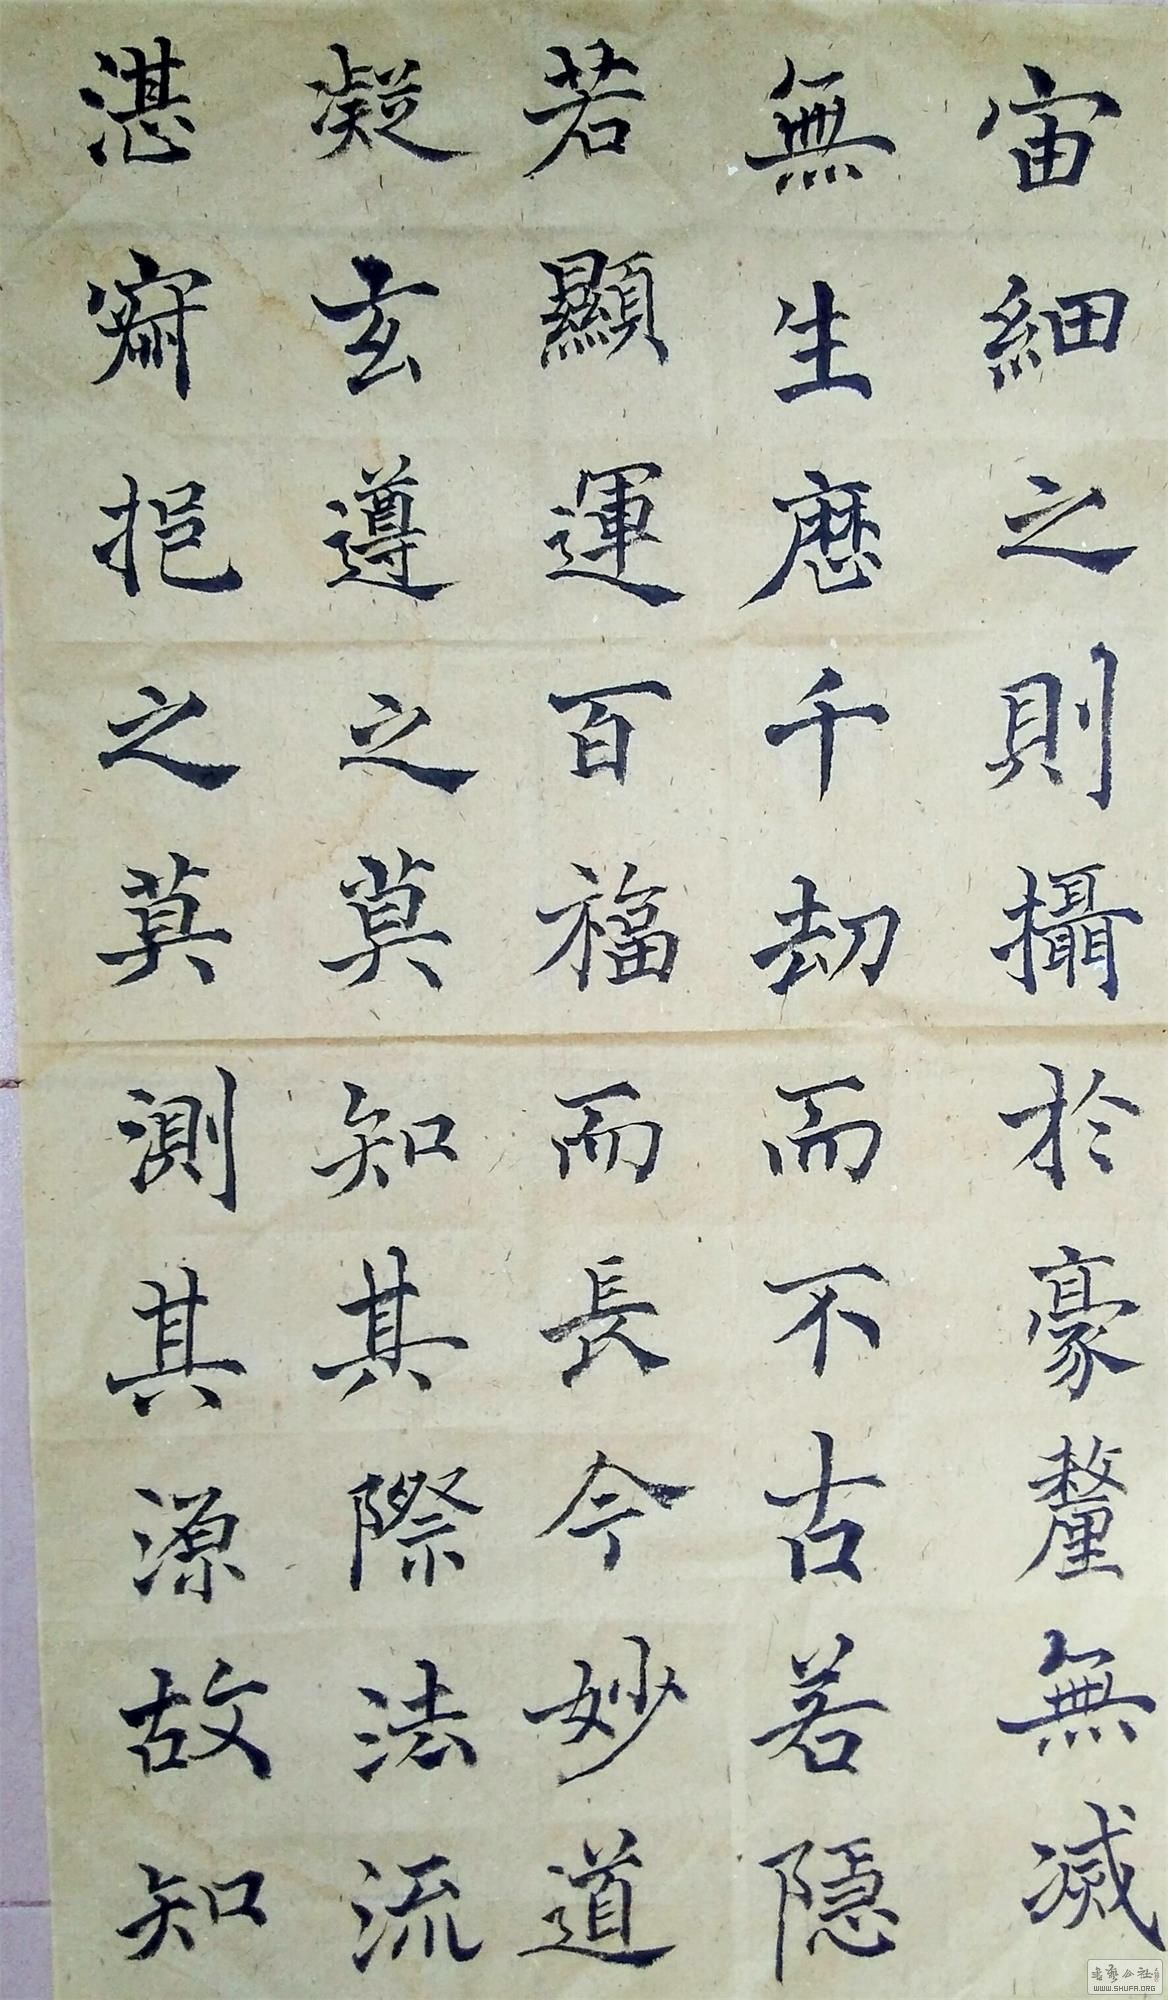 宙細之則攝於豪釐無滅
無生歷千劫而不古若隱
若顯運百福而長今妙道
凝玄遵之莫知其際法流
湛寂挹之莫測其源故知
WWW.SHUFA.ORG